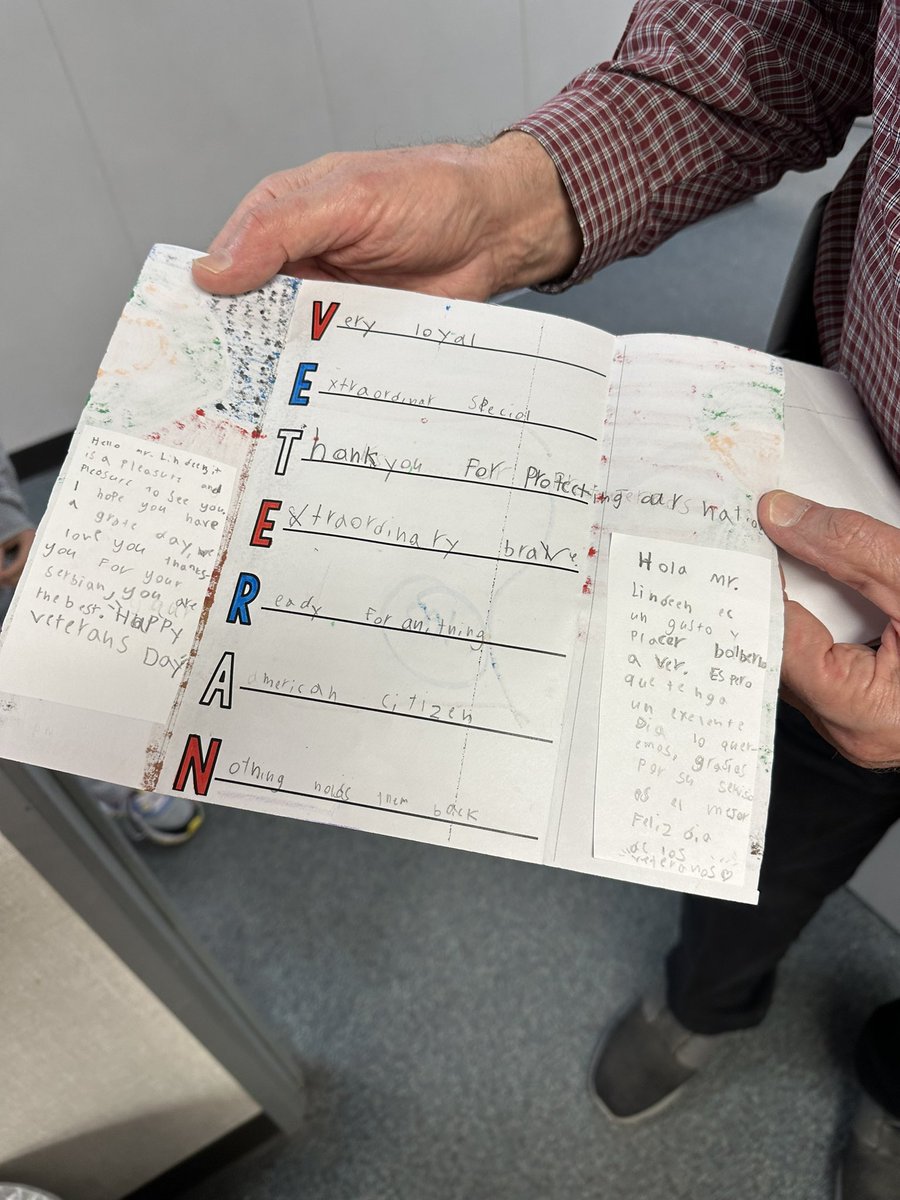 Hello mr. Lindeen, it
is a pleasure and
pleasure to see you.
I hope you have
a grate day, we
love you, thanks-
you For your
serbian, you are
the best. Happy
veterans Day
Very loyal
Extraordinar special
Thank you For Protecting ours nation
Extraordinary brave
Ready For anithing
American citizen
Nothing holds them back
Hola mr.
Lindeen es
un gusto y
Placer bolberlo
a ver. Espero
que tenga
un exelente
Dia lo quer-
emos, grasias
Por su serviso
es el mejor
Feliz dia
de los
veteranos ♡